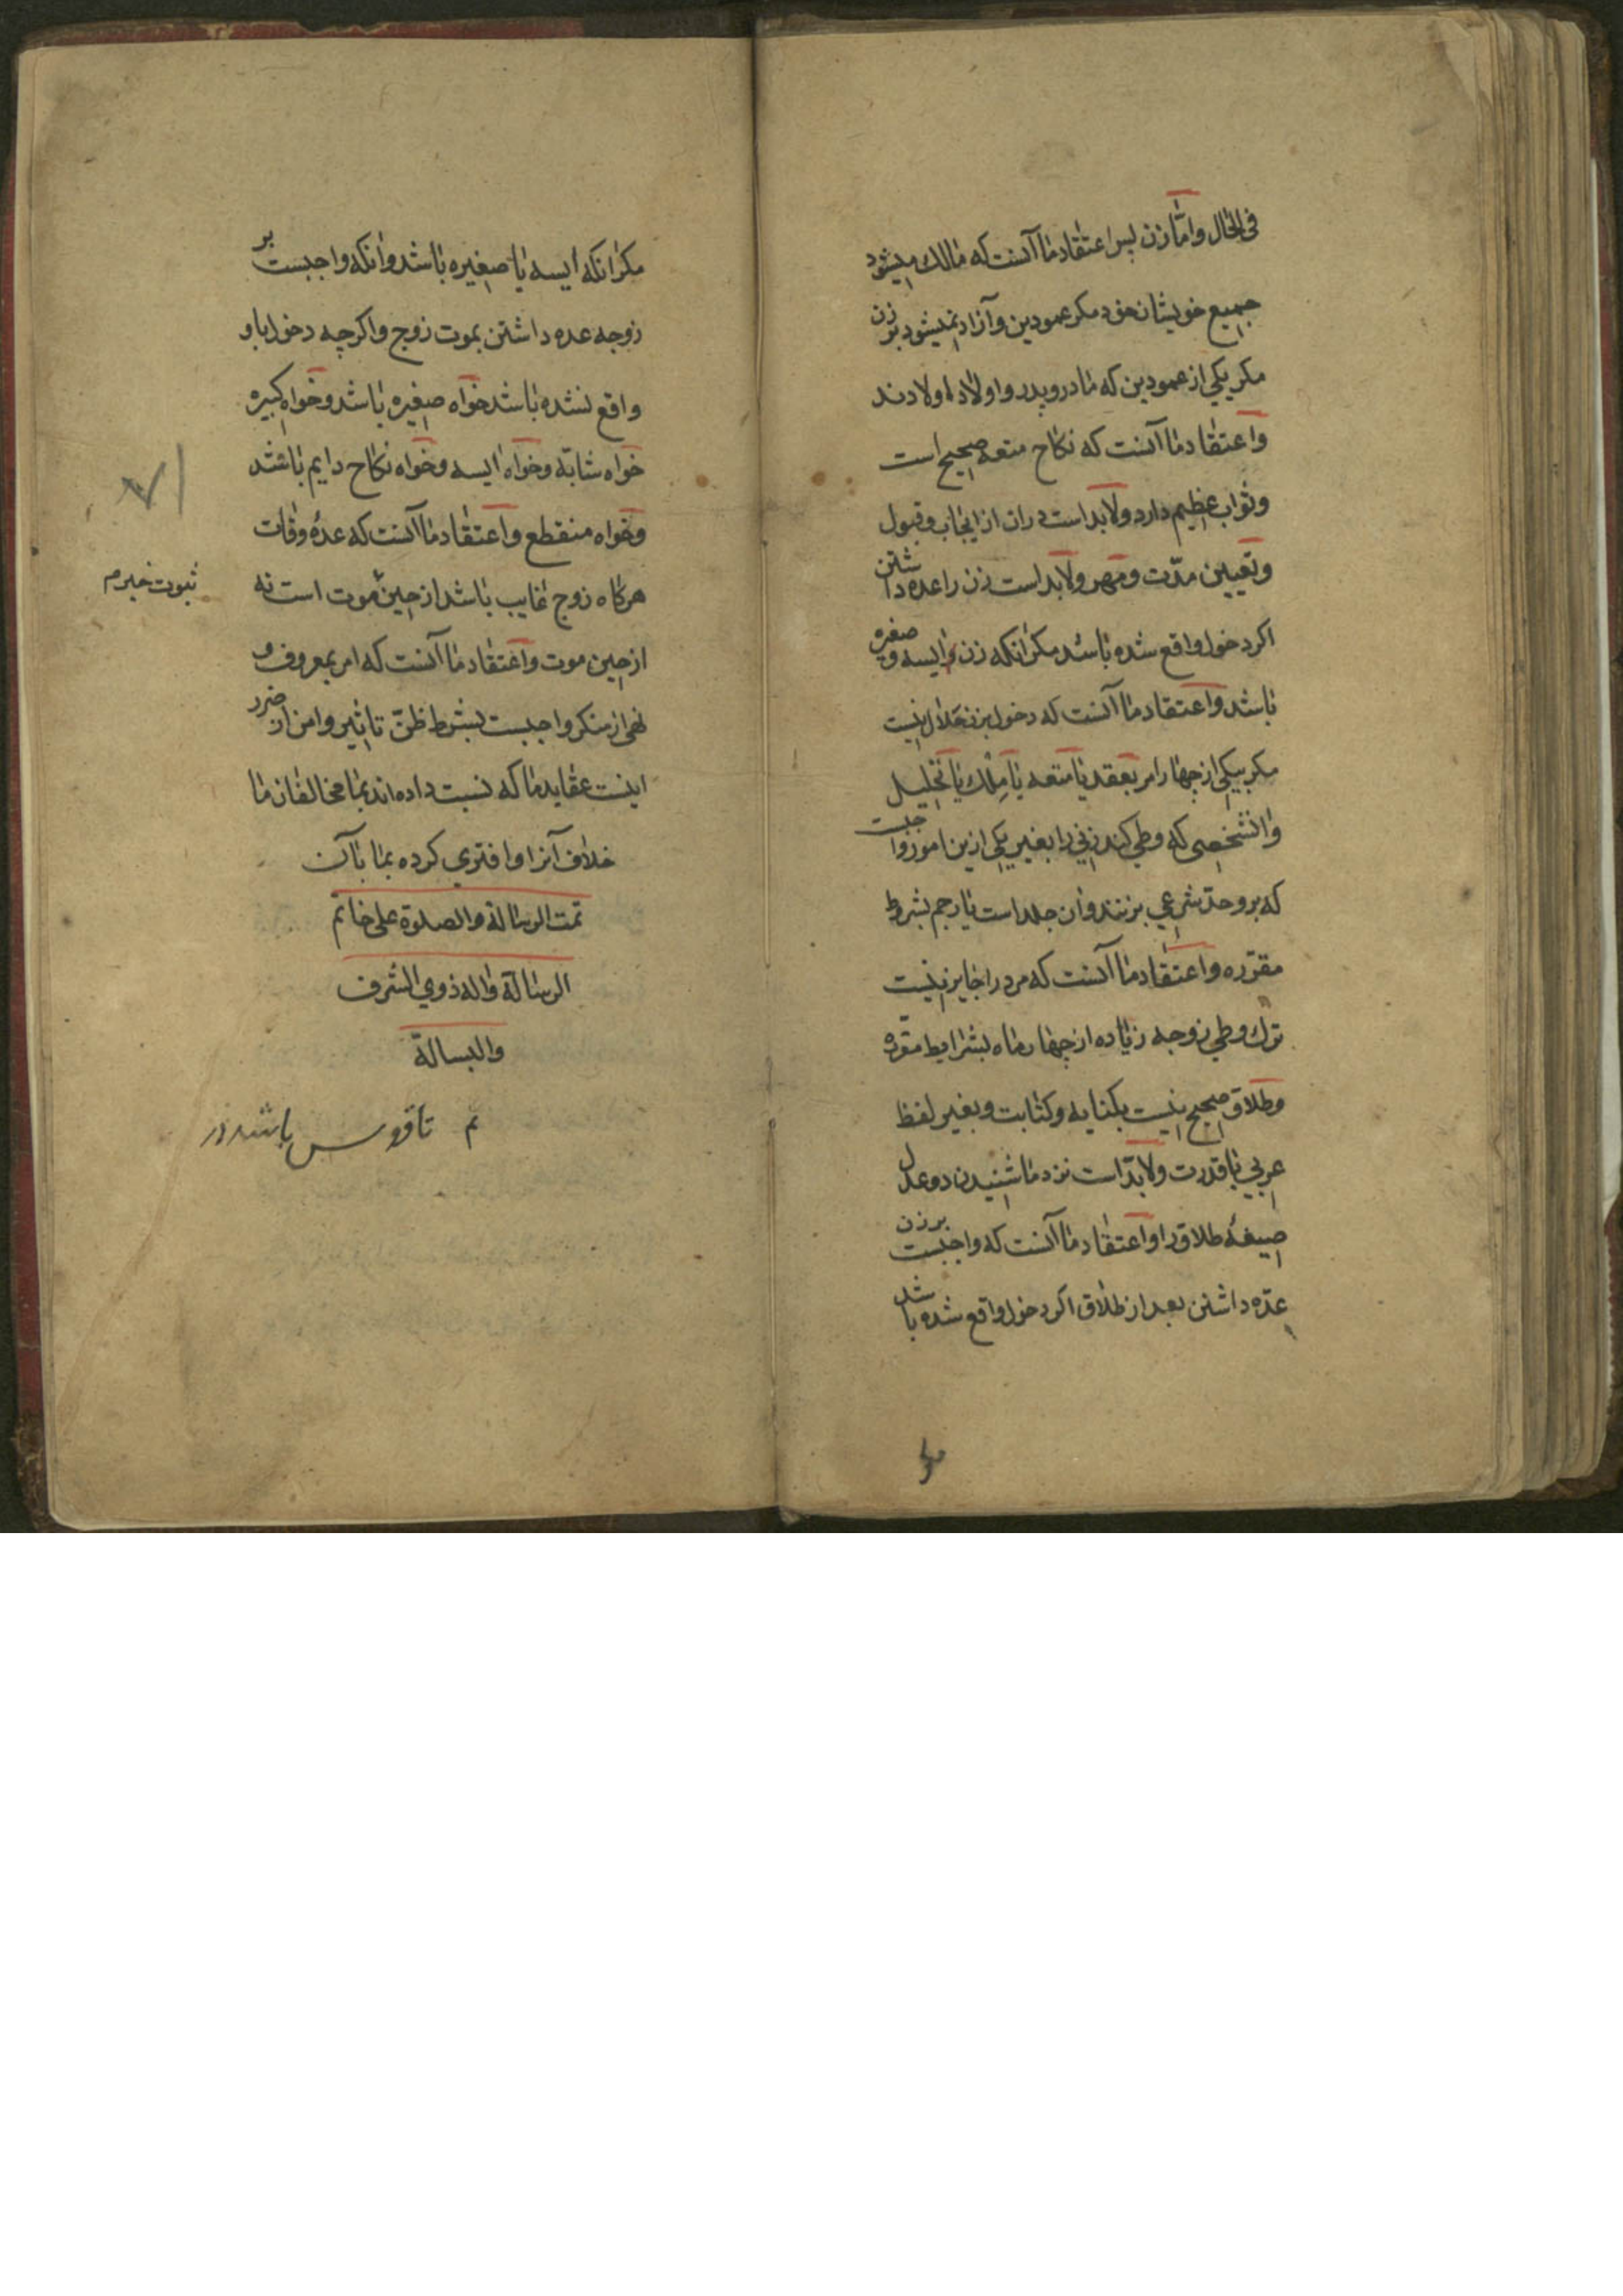 فی الحال و اما زن پس اعتقاد ما آنست که مالك میشود
جمیع خویشان خود مکر عمودین و آزاد نمیشود بر زن
مکر یکی از عمودین که مادر و پدر و اولاد اولادند
و اعتقاد ما آنست که نکاح متعه صحیح است
و ثواب عظیم دارد و لابد است دران از ایجاب و قبول
و تعیین مدّت و مهر و لابد است زن را عده داشتن
اکر دخول واقع شده باشد مکر انکه زن ایسه و صغیره
باشد و اعتقاد ما آنست که دخول بزن حلال نیست
مکر بیکی از چهار امر بعقد یا متعه یا مِلك یا تحلیل
و انشخصی که وطی کند زنی را بغیر یکی ازین امور واجبست
که برو حدّ شرعی بزنند و ان جلد است یا رجم بشروط
مقرّره و اعتقاد ما آنست که مرد را جایز نیست
ترك وطی زوجه زیاده از چهار ماه بشرایط مقرّره
و طلاق صحیح نیست بکنایه و کتابت و بغیر لفظ
عربی با قدرت و لابدّ است نزد ما شنیدن دو عدل
صیغهٔ طلاق را و اعتقاد ما آنست که واجبست بر زن
عدّه داشتن بعد از طلاق اکر دخول واقع شده باشد
مکر
مکر انکه ایسه یا صغیره باشد و انکه واجبست بر
زوجه عده داشتن بموت زوج و اکرچه دخول باو
واقع نشده باشد خواه صغیره باشد و خواه کبیره
خواه شابّه و خواه ایسه و خواه نکاح دایم باشد
و خواه منقطع و اعتقاد ما آنست که عدهٔ وفات
هرکاه زوج غایب باشد از حین موت است نه
ثبوت خبر
از حین موت و اعتقاد ما آنست که امر بمعروف و
نهی از منکر واجبست بشرط ظنّ تاثیر و امن از ضرر
اینست عقاید ما که نسبت داده اند بما مخالفان ما
خلاف آنرا و افتری کرده بما بآن
تمت الرسالة والصلوة علی خاتم
الرسالة واله ذوي الشرف
والبسالة
م